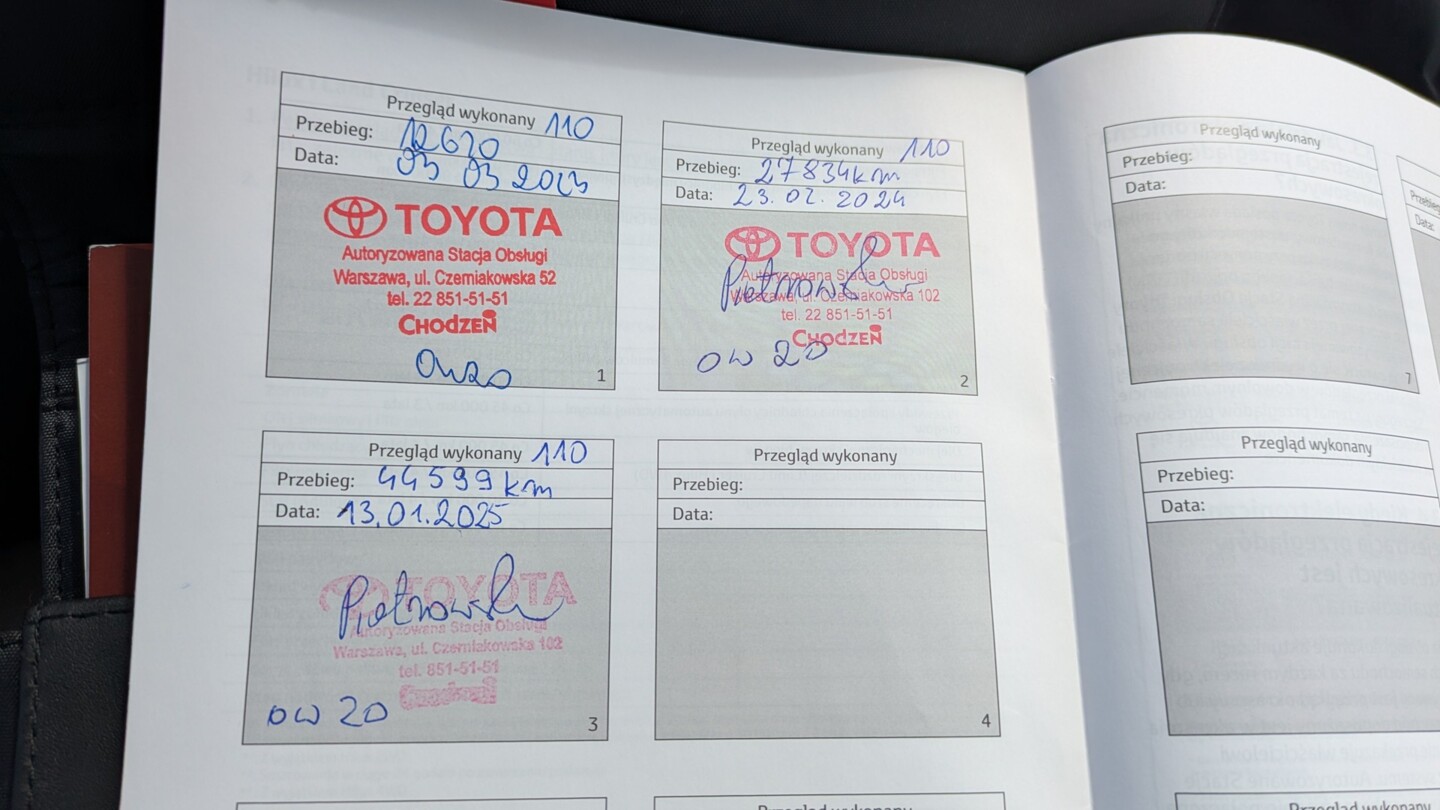 Przegląd wykonany 110
Przebieg: 12620
Data: 03 03 2023
TOYOTA
Autoryzowana Stacja Obsługi
Warszawa, ul. Czerniakowska 52
tel. 22 851-51-51
CHODZEŃ
OW20
1
Przegląd wykonany 110
Przebieg: 27834km
Data: 23.02.2024
TOYOTA
Autoryzowana Stacja Obsługi
Warszawa, ul. Czerniakowska 102
tel. 22 851-51-51
CHODZEŃ
OW 20
2
Przegląd wykonany 110
Przebieg: 44599 km
Data: 13.01.2025
TOYOTA
Autoryzowana Stacja Obsługi
Warszawa, ul. Czerniakowska 102
tel. 851-51-51
OW 20
3
Przegląd wykonany
Przebieg:
Data:
4
Przegląd wykonany
Przegląd wykonany
Przebieg:
Data:
7
Przegląd wykonany
Przebieg:
Data:
Przegląd wykonany
Przebieg
Data: